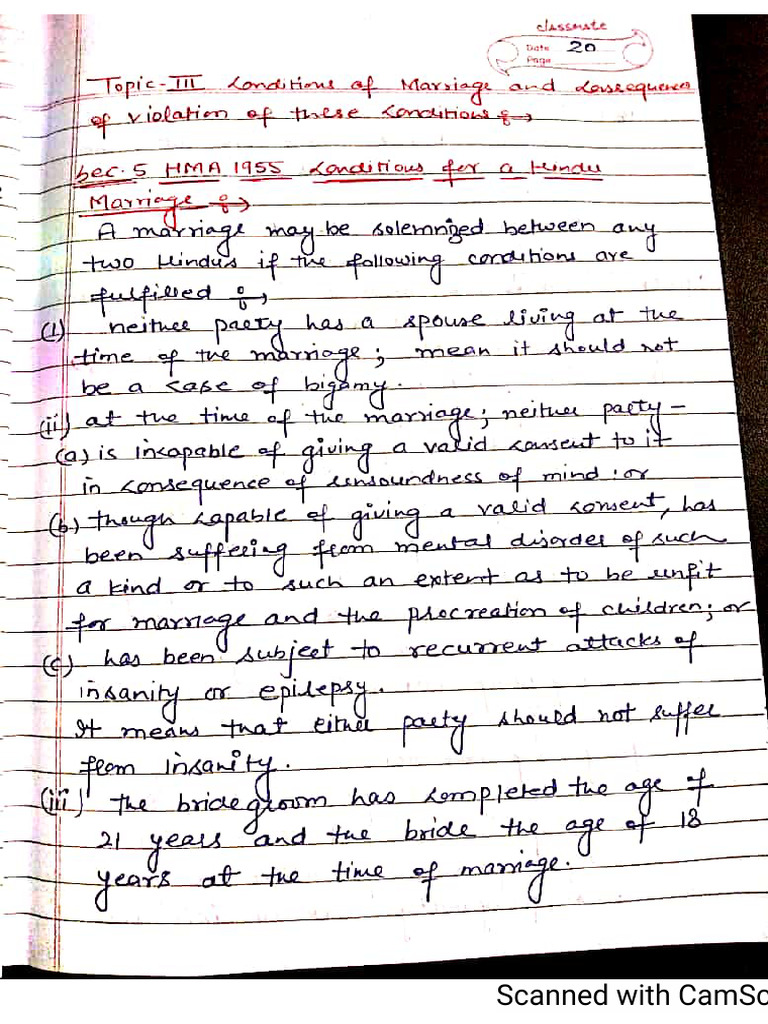 classmate
Date 20
Page
Topic-III Conditions of Marriage and Consequences
of violation of these Conditions :→
Sec. 5 HMA 1955 Conditions for a Hindu
Marriage :→
A marriage may be solemnized between any
two Hindus if the following conditions are
fulfilled :→
(1) neither party has a spouse living at the
time of the marriage; mean it should not
be a case of bigamy.
(ii) at the time of the marriage; neither party –
(a) is incapable of giving a valid consent to it
in consequence of unsoundness of mind; or
(b) though capable of giving a valid consent, has
been suffering from mental disorder of such
a kind or to such an extent as to be unfit
for marriage and the procreation of children; or
(c) has been subject to recurrent attacks of
insanity or epilepsy.
It means that either party should not suffer
from insanity.
(iii) the bridegroom has completed the age of
21 years and the bride the age of 18
years at the time of marriage.
Scanned with CamSc